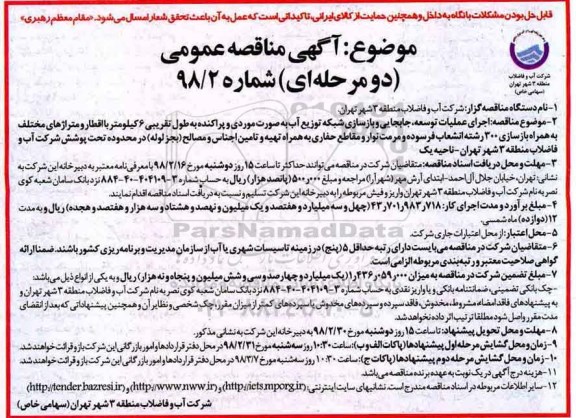 قابل حل بودن مشکلات با نگاه به داخل و همچنین حمایت از کالای ایرانی، تاکیداتی است که عمل به آن باعث تحقق شعار امسال می‌شود. «مقام معظم رهبری»
موضوع: آگهی مناقصه عمومی
(دو مرحله‌ای) شماره ۹۸/۲
شرکت آب و فاضلاب
منطقه ۳ شهر تهران
(سهامی خاص)
۱- نام دستگاه مناقصه گزار: شرکت آب و فاضلاب منطقه ۳ شهر تهران
۲- موضوع مناقصه: اجرای عملیات توسعه، جابجایی و بازسازی شبکه توزیع آب به صورت موردی و پراکنده به طول تقریبی ۶ کیلومتر با اقطار و متراژهای مختلف
به همراه بازسازی ۳۰۰ رشته انشعاب فرسوده و مرمت نوار و مقاطع حفاری به همراه تهیه و تامین اجناس و مصالح (بجز لوله) در محدوده تحت پوشش شرکت آب و
فاضلاب منطقه ۳ شهر تهران - ناحیه یک
۳- مهلت و محل دریافت اسناد مناقصه: متقاضیان شرکت در مناقصه می‌توانند حداکثر تا ساعت ۱۵ روز دوشنبه مورخ ۹۸/۲/۱۶ با معرفی نامه معتبر به دبیرخانه این شرکت به
نشانی: تهران، خیابان جلال آل احمد - ابتدای آرش مهر (شهرآرا) مراجعه و مبلغ ۵۰۰,۰۰۰ (پانصد هزار) ریال به حساب شماره ۳-۴۰۴۱۰۹-۴۰-۸۸۴ نزد بانک سامان شعبه کوی
نصر به نام شرکت آب و فاضلاب منطقه ۳ شهر تهران واریز و فیش مربوطه را به دبیرخانه این شرکت تسلیم و نسبت به دریافت اسناد مناقصه اقدام نمایند.
۴- مبلغ برآورد و مدت اجرای کار: ۴۳,۷۰۱,۹۸۳,۷۱۸ (چهل و سه میلیارد و هفتصد و یک میلیون و نهصد و هشتاد و سه هزار و هفتصد و هجده) ریال و به مدت
۱۲ (دوازده) ماه شمسی.
۵- محل اعتبار: از محل اعتبارات جاری شرکت.
۶- متقاضیان شرکت در مناقصه می‌بایست دارای رتبه حداقل ۵ (پنج) در زمینه تاسیسات شهری یا آب از سازمان مدیریت و برنامه ریزی کشور باشند. ضمنا ارائه
گواهی صلاحیت معتبر و رتبه بندی مربوطه الزامی است.
۷- مبلغ تضمین شرکت در مناقصه به میزان ۱,۴۳۶,۰۵۹,۰۰۰ (یک میلیارد و چهارصد و سی و شش میلیون و پنجاه و نه هزار) ریال و به یکی از انواع ذیل می‌باشد:
-چک بانکی تضمینی، ضمانتنامه بانکی و یا واریز نقدی به حساب شماره ۳-۴۰۴۱۰۹-۴۰-۸۸۴ نزد بانک سامان شعبه کوی نصر به نام شرکت آب و فاضلاب منطقه ۳ شهر تهران و
به پیشنهادهای فاقد امضاء، مشروط، مخدوش، فاقد سپرده و سپرده‌های مخدوش یا سپرده‌های کمتر از میزان مقرر، چک شخصی و نظایر آن و همچنین پیشنهاداتی که بعد از انقضای
مدت مقرر واصل شود مطلقا ترتیب اثر داده نخواهد شد.
۸- مهلت و محل تحویل پیشنهادها: تا ساعت ۱۵ روز دوشنبه مورخ ۹۸/۲/۳۰ به دبیرخانه این شرکت به نشانی مذکور.
۹- زمان و محل گشایش مرحله اول پیشنهادها (پاکات الف و ب): ساعت ۱۰:۳۰ روز سه‌شنبه مورخ ۹۸/۲/۳۱ در محل دفتر قراردادها و امور بازرگانی این شرکت باز و قرائت خواهند شد.
۱۰- زمان و محل گشایش مرحله دوم پیشنهادها (پاکات ج): ساعت ۱۰:۳۰ روز سه شنبه مورخ ۹۸/۳/۷ در محل دفتر قراردادها و امور بازرگانی این شرکت باز و قرائت خواهند شد.
۱۱- هزینه درج آگهی در یک نوبت به عهده برنده مناقصه می‌باشد.
۱۲- سایر اطلاعات مربوطه در اسناد مناقصه مندرج است. نشانیهای سایت اینترنتی: (http://iets.mporg.ir) و (http://www.nww.ir) و (http://tender.bazresi.ir)
شرکت آب و فاضلاب منطقه ۳ شهر تهران (سهامی خاص)
ParsNamadData